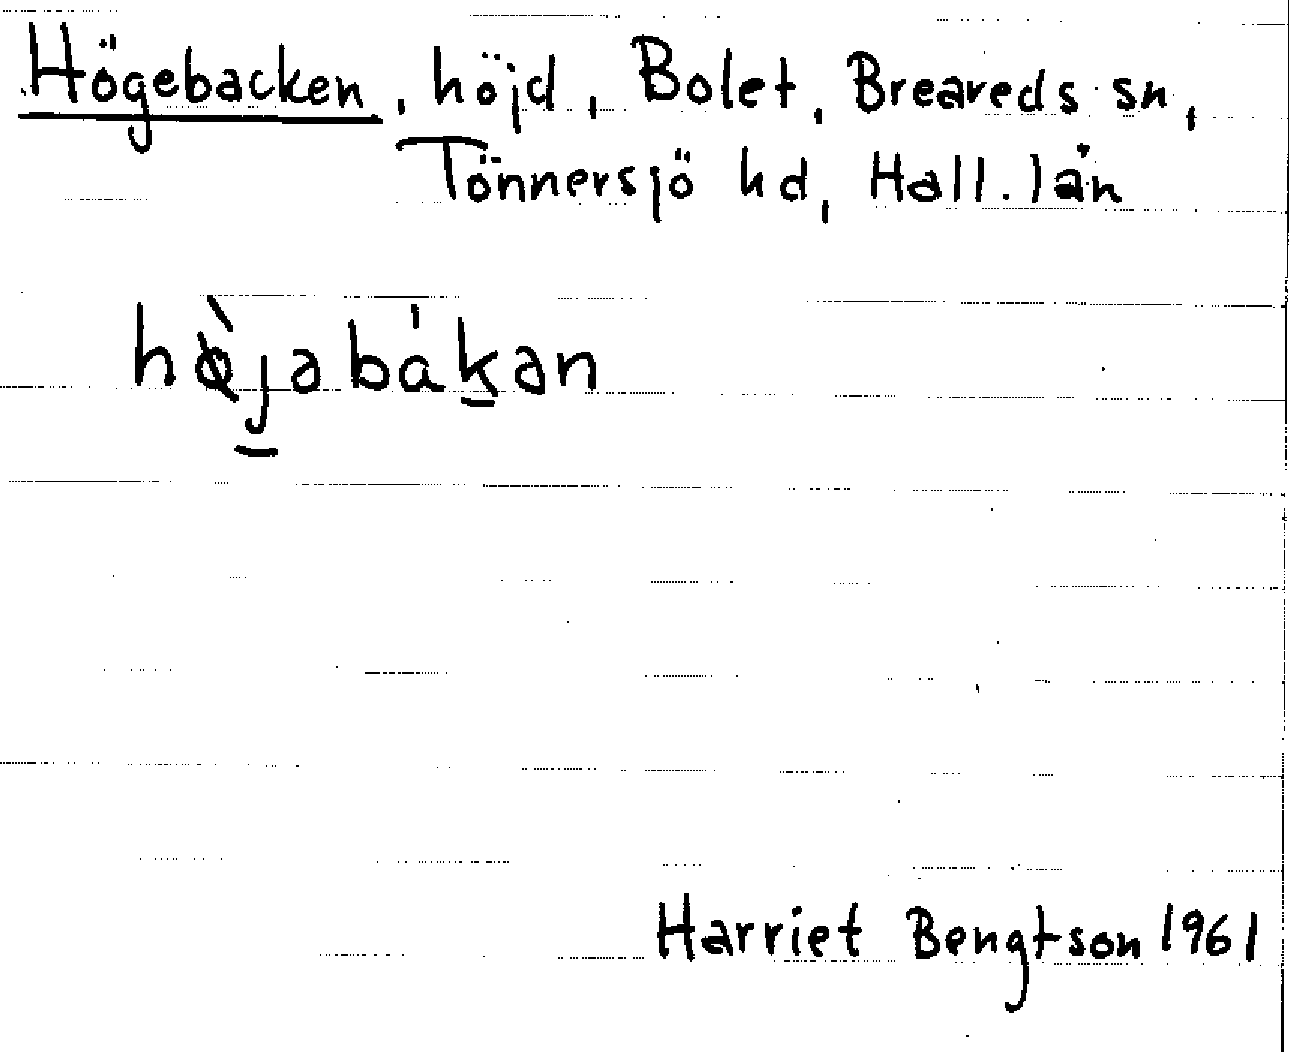 Högebacken, höjd, Bolet, Breareds sn,
Tönnersjö hd, Hall. län
hø̀jəbákən
Harriet Bengtson 1961